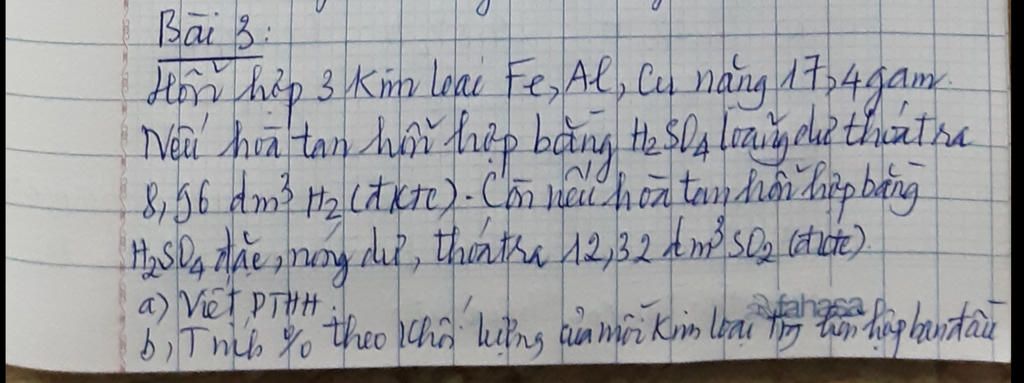 Bài 3:
Hỗn hợp 3 Kim loại Fe, Al, Cu nặng 17,4 gam.
Nếu hoà tan hỗn hợp bằng H₂SO₄ loãng dư thoát ra
8,96 dm³ H₂ (đktc). Còn nếu hoà tan hỗn hợp bằng
H₂SO₄ đặc, nóng dư, thoát ra 12,32 dm³ SO₂ (đktc).
a) Viết PTHH.
fahasa
b, Tính % theo khối lượng của mỗi Kim loại hợp ban đầu